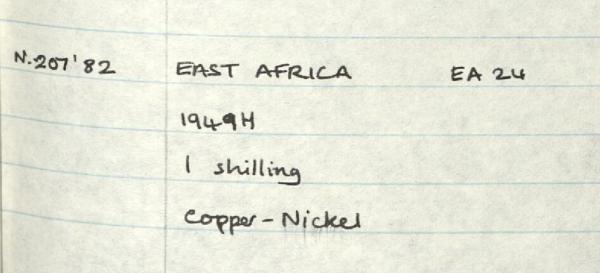 N.207'82 EAST AFRICA EA 24
1949H
1 shilling
Copper-Nickel